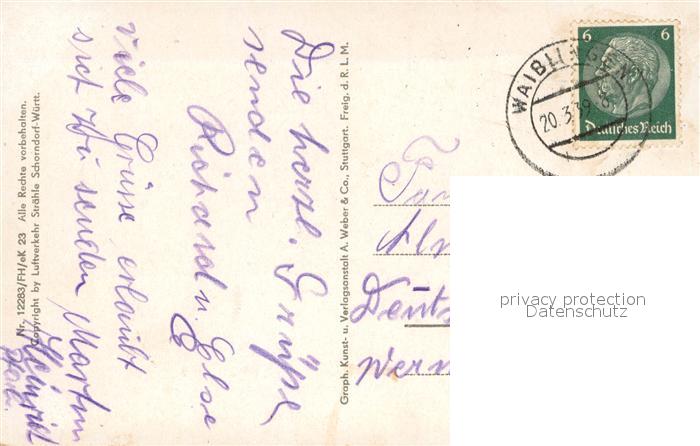 Die herzl. Grüße
senden
Richard u. Else
viele Grüsse erlaubt
sich zu senden Martin
Heinrich
Nr. 12283/FH/eK 23 Alle Rechte vorbehalten.
Copyright by Luftverkehr Strähle Schorndorf-Württ.
Graph. Kunst- u. Verlagsanstalt A. Weber & Co., Stuttgart. Freig. d. R. L. M.
WAIBLINGEN
20.3.39
6 6
Deutsches Reich
privacy protection
Datenschutz